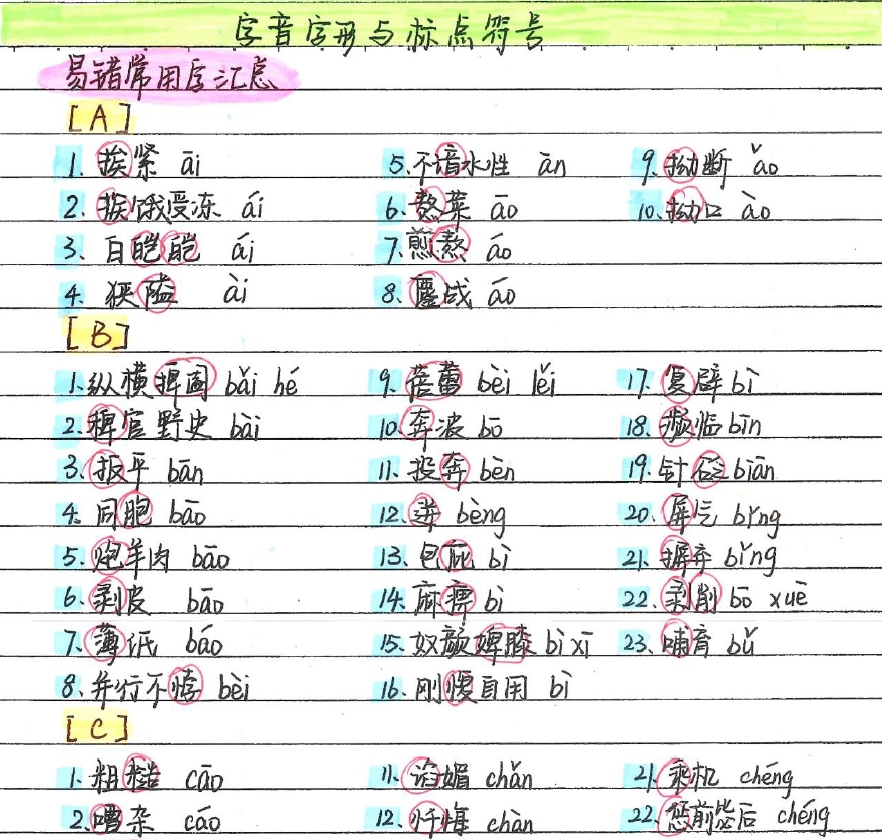 字音字形与标点符号
易错常用字汇总
[A]
1. 挨紧 āi
2. 挨饿受冻 ái
3. 白皑皑 ái
4. 狭隘 ài
5. 不谙水性 ān
6. 熬菜 āo
7. 煎熬 áo
8. 鏖战 áo
9. 拗断 ǎo
10. 拗口 ào
[B]
1. 纵横捭阖 bǎi hé
2. 稗官野史 bài
3. 扳平 bān
4. 同胞 bāo
5. 炮羊肉 bāo
6. 剥皮 bāo
7. 薄纸 báo
8. 并行不悖 bèi
9. 蓓蕾 bèi lěi
10. 奔波 bō
11. 投奔 bèn
12. 迸 bèng
13. 包庇 bì
14. 麻痹 bì
15. 奴颜婢膝 bì xī
16. 刚愎自用 bì
17. 复辟 bì
18. 濒临 bīn
19. 针砭 biān
20. 屏气 bǐng
21. 摒弃 bǐng
22. 剥削 bō xuē
23. 哺育 bǔ
[C]
1. 粗糙 cāo
2. 嘈杂 cáo
11. 谄媚 chǎn
12. 忏悔 chàn
21. 乘机 chéng
22. 惩前毖后 chéng